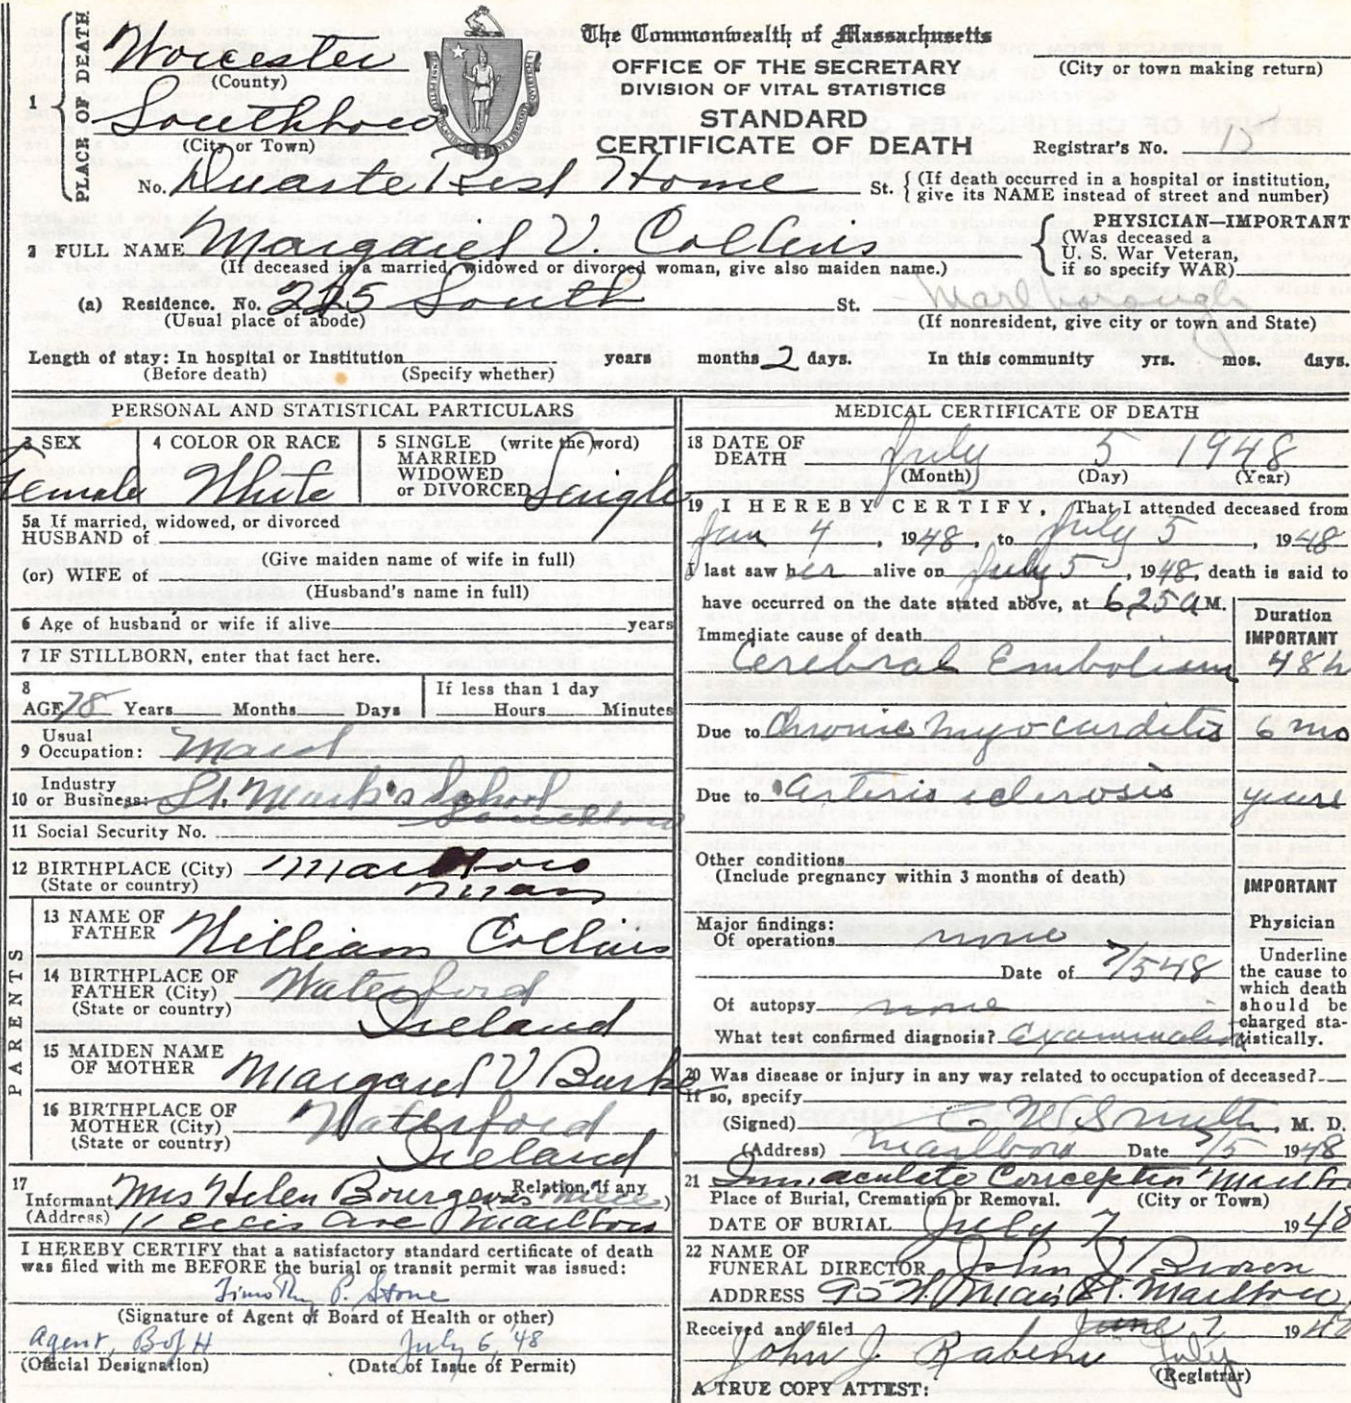 The Commonwealth of Massachusetts
OFFICE OF THE SECRETARY
DIVISION OF VITAL STATISTICS
STANDARD
CERTIFICATE OF DEATH
1 PLACE OF DEATH
Worcester
(County)
Southboro
(City or Town)
No. Duarte Rest Home St.
(City or town making return)
Registrar's No. 15
(If death occurred in a hospital or institution, give its NAME instead of street and number)
2 FULL NAME Margaret V. Collins
(If deceased is a married, widowed or divorced woman, give also maiden name.)
PHYSICIAN—IMPORTANT
(Was deceased a
U. S. War Veteran,
if so specify WAR)
(a) Residence. No. 225 South St. Marlborough
(Usual place of abode)
(If nonresident, give city or town and State)
Length of stay: In hospital or Institution years months 2 days. In this community yrs. mos. days.
(Before death) (Specify whether)
PERSONAL AND STATISTICAL PARTICULARS
3 SEX
Female
4 COLOR OR RACE
White
5 SINGLE (write the word)
MARRIED
WIDOWED
or DIVORCED Single
5a If married, widowed, or divorced
HUSBAND of
(Give maiden name of wife in full)
(or) WIFE of
(Husband's name in full)
6 Age of husband or wife if alive years
7 IF STILLBORN, enter that fact here.
8
AGE 78 Years Months Days
If less than 1 day
Hours Minutes
Usual
9 Occupation: Maid
Industry
10 or Business: St. Mark's School
Southboro
11 Social Security No.
12 BIRTHPLACE (City) Marlboro
(State or country) Mass
PARENTS
13 NAME OF
FATHER William Collins
14 BIRTHPLACE OF
FATHER (City) Waterford
(State or country) Ireland
15 MAIDEN NAME
OF MOTHER Margaret V Burke
16 BIRTHPLACE OF
MOTHER (City) Waterford
(State or country) Ireland
17
Informant Mrs Helen Bourgeois Relation, if any niece
(Address) Ave Marlboro
I HEREBY CERTIFY that a satisfactory standard certificate of death
was filed with me BEFORE the burial or transit permit was issued:
Timothy P. Stone
(Signature of Agent of Board of Health or other)
Agent, B of H July 6, '48
(Official Designation) (Date of Issue of Permit)
MEDICAL CERTIFICATE OF DEATH
18 DATE OF
DEATH July 5 1948
(Month) (Day) (Year)
19 I HEREBY CERTIFY, That I attended deceased from
Jan 4, 1948, to July 5, 1948
I last saw her alive on July 5, 1948, death is said to
have occurred on the date stated above, at 6 25 a M.
Duration
IMPORTANT
Immediate cause of death
Cerebral Embolism 48 h
Due to Chronic myocarditis 6 mo
Due to Arterio sclerosis years
Other conditions
(Include pregnancy within 3 months of death)
IMPORTANT
Major findings:
Of operations none
Date of 7/5 48
Of autopsy none
What test confirmed diagnosis? Examination
Physician
Underline
the cause to
which death
should be
charged sta-
tistically.
20 Was disease or injury in any way related to occupation of deceased?
If so, specify
(Signed) Smith, M. D.
(Address) Marlboro Date 7/5 1948
21 Immaculate Conception Marlboro
Place of Burial, Cremation or Removal. (City or Town)
DATE OF BURIAL July 7, 1948
22 NAME OF
FUNERAL DIRECTOR John J Brown
ADDRESS 95 W. Main St. Marlboro
Received and filed June 7 1948
July
(Registrar)
A TRUE COPY ATTEST: